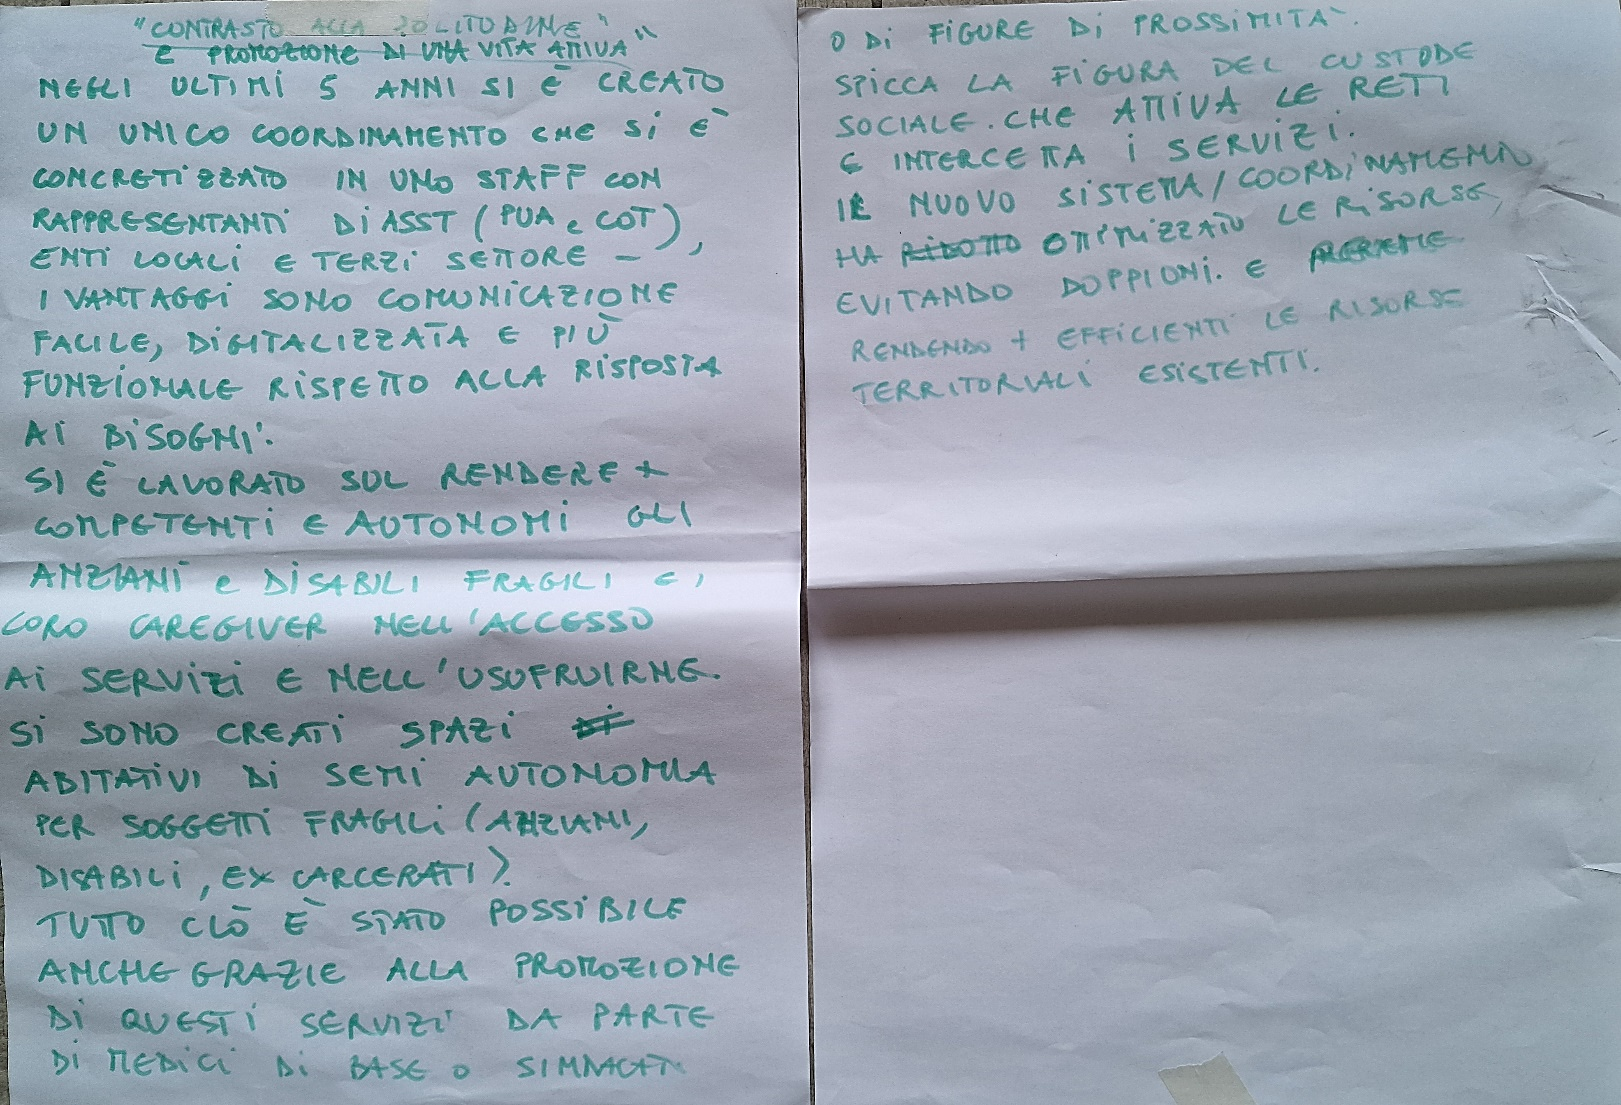 "CONTRASTO ALLA SOLITUDINE"
E PROMOZIONE DI UNA VITA ATTIVA"
NEGLI ULTIMI 5 ANNI SI È CREATO
UN UNICO COORDINAMENTO CHE SI È
CONCRETIZZATO IN UNO STAFF CON
RAPPRESENTANTI DI ASST (PUA e COT),
ENTI LOCALI E TERZI SETTORE -
I VANTAGGI SONO COMUNICAZIONE
FACILE, DIGITALIZZATA E PIÙ
FUNZIONALE RISPETTO ALLA RISPOSTA
AI BISOGNI.
SI È LAVORATO SUL RENDERE +
COMPETENTI E AUTONOMI GLI
ANZIANI e DISABILI FRAGILI E I
LORO CAREGIVER NELL'ACCESSO
AI SERVIZI E NELL'USUFRUIRNE.
SI SONO CREATI SPAZI DI
ABITATIVI DI SEMI AUTONOMIA
PER SOGGETTI FRAGILI (ANZIANI,
DISABILI, EX CARCERATI).
TUTTO CIÒ È STATO POSSIBILE
ANCHE GRAZIE ALLA PROMOZIONE
DI QUESTI SERVIZI DA PARTE
DI MEDICI DI BASE O SINDACATI
O DI FIGURE DI PROSSIMITÀ.
SPICCA LA FIGURA DEL CUSTODE
SOCIALE. CHE ATTIVA LE RETI
E INTERCETTA I SERVIZI.
IL NUOVO SISTEMA/COORDINAMENTO
HA RIDOTTO OTTIMIZZATO LE RISORSE,
EVITANDO DOPPIONI. E
RENDENDO + EFFICIENTI LE RISORSE
TERRITORIALI ESISTENTI.